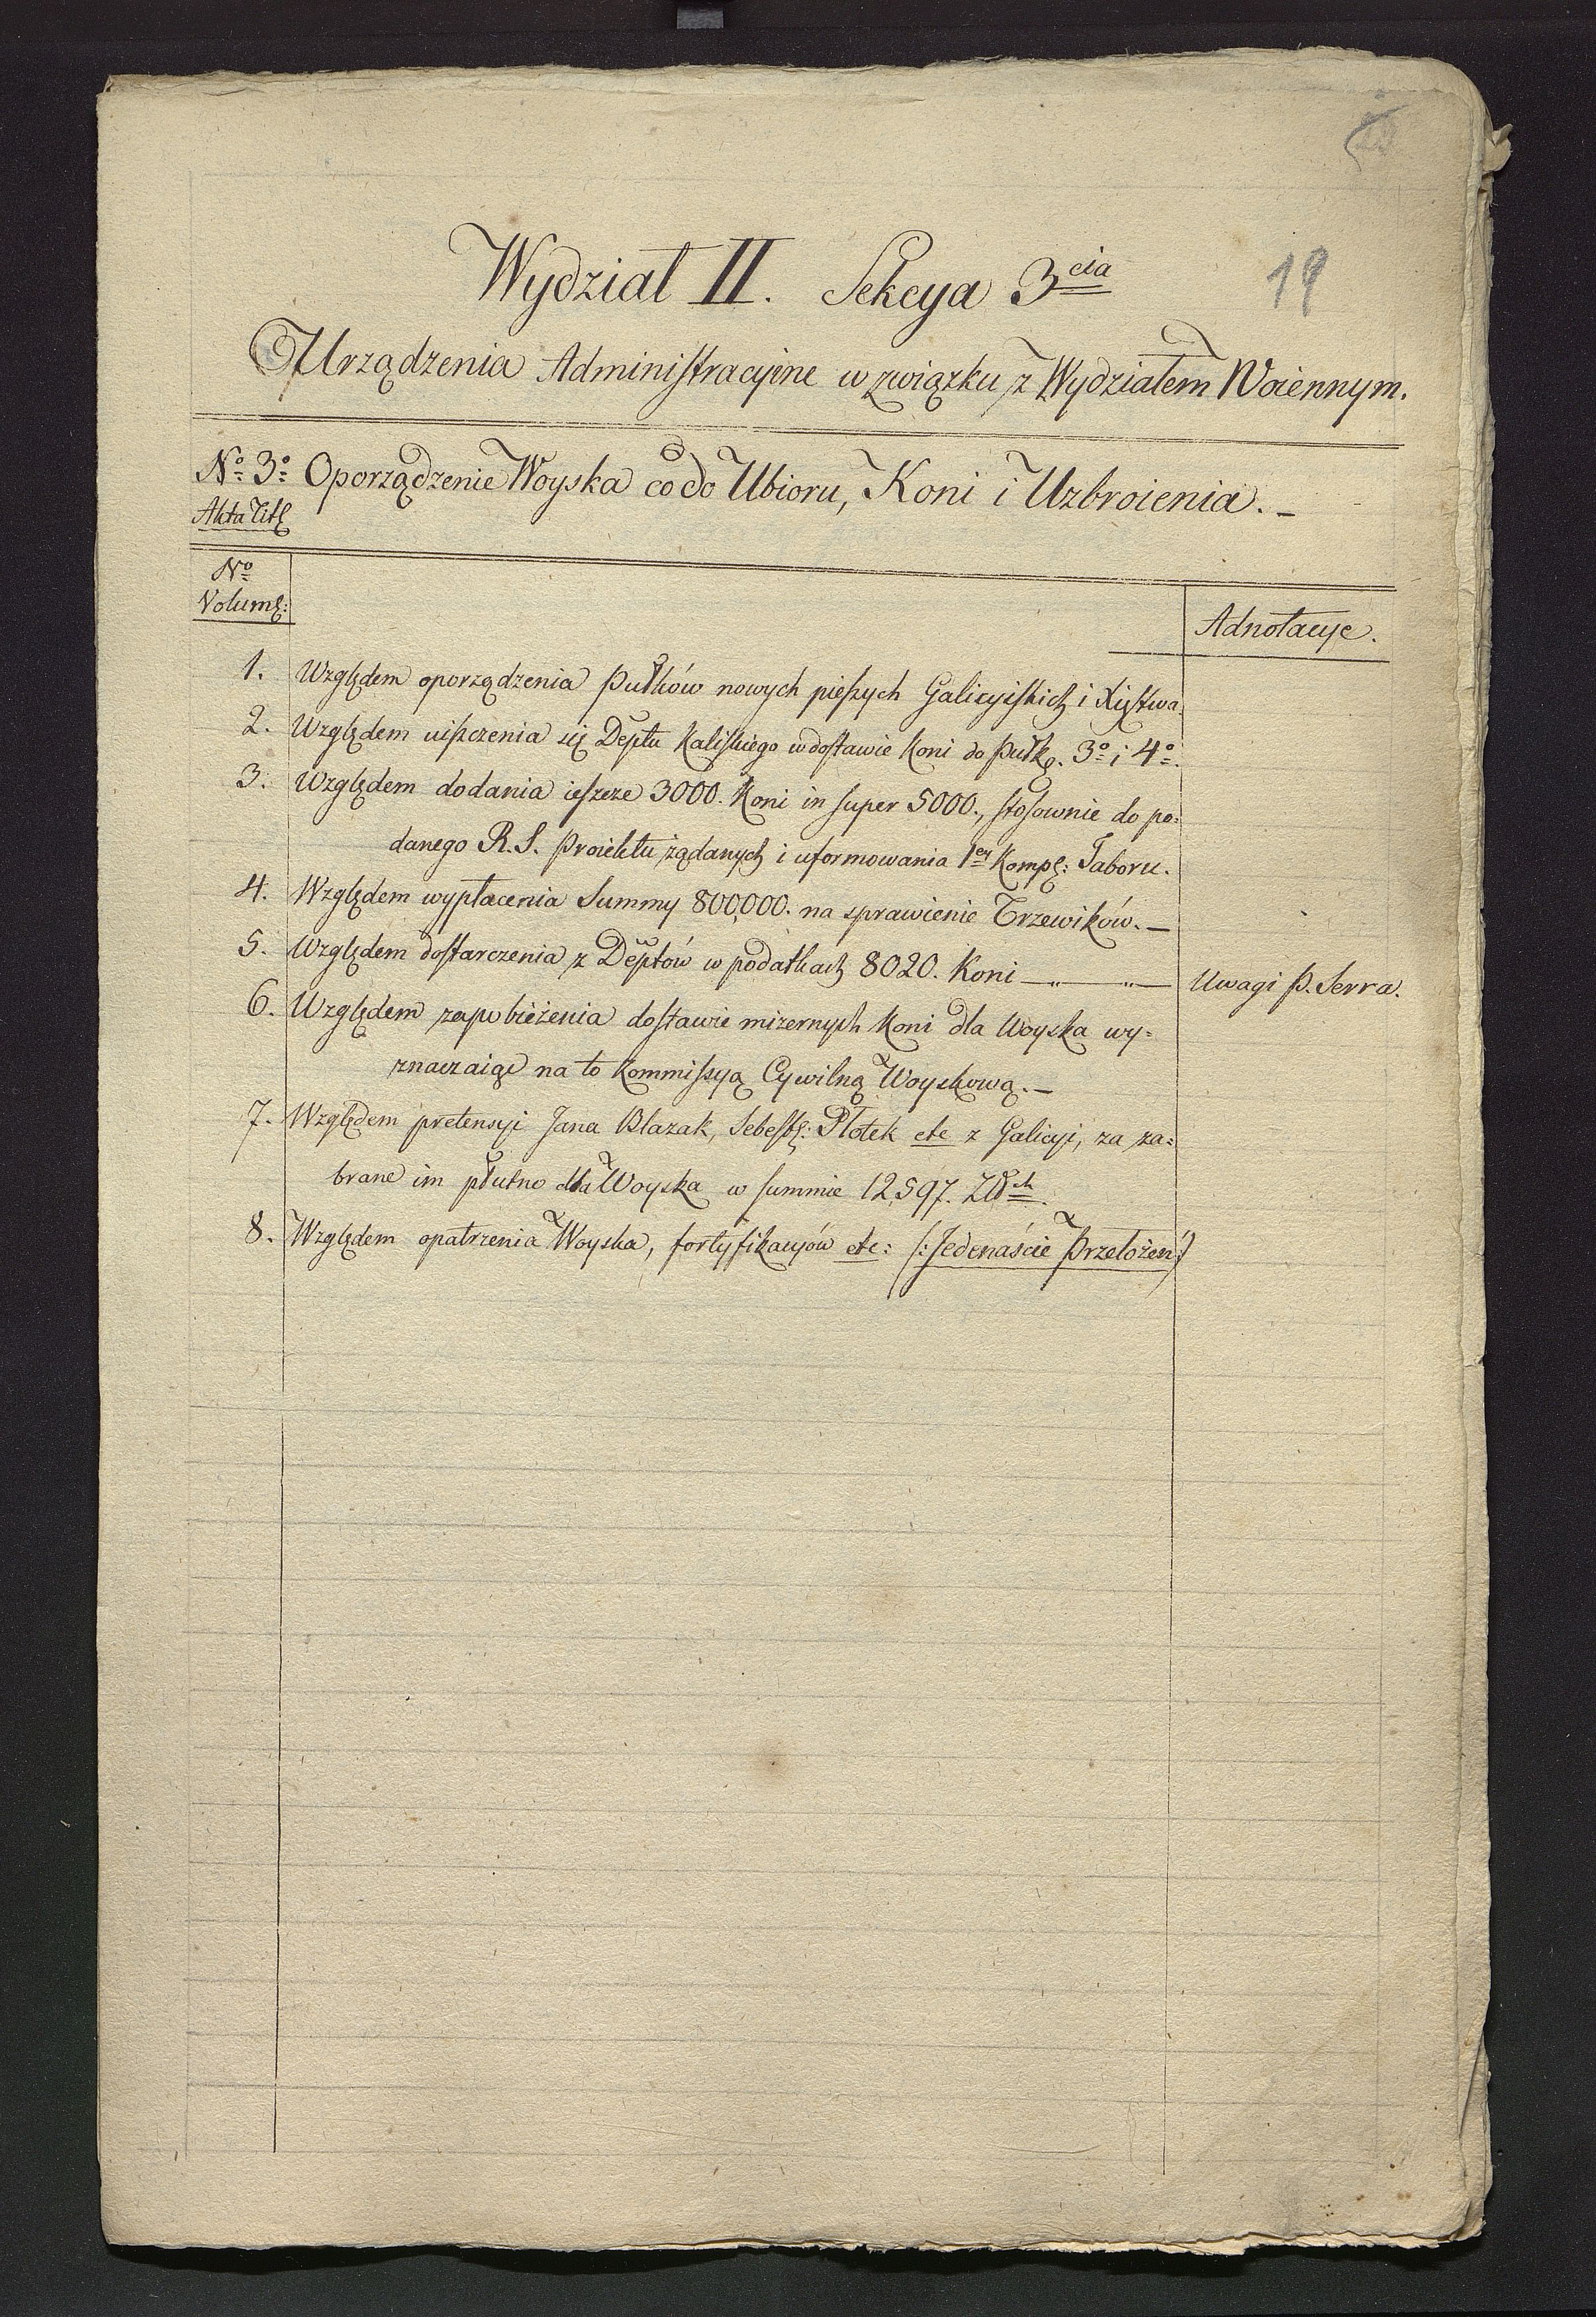 19
Wydział II. Sekcya 3cia
Urządzenia Administracyine w związku z Wydziałem Woiennym.
No 3o Oporządzenie Woyska co do Ubioru, Koni i Uzbroienia. –
Akta Tit:
No
Volum:
Adnotacye.
1. Względem oporządzenia Pułków nowych pieszych Galicyiskich i Xięstwa.
2. Względem uiszczenia się Deptu Kaliskiego w dostawie Koni do Pułk. 3o i 4o.
3. Względem dodania ieszcze 3000. Koni in super 5000., stosownie do po=
danego R. S. Proiektu żądanych i uformowania 1ey Komp: Taboru.
4. Względem wypłacenia Summy 800,000. na sprawienie Trzewików. –
5. Względem dostarczenia z Deptów w podatkach 8020. Koni — " — " — Uwagi P. Serra.
6. Względem zapobieżenia dostawie mizernych Koni dla Woyska wy=
znaczaiąc na to Kommissyą Cywilną Woyskową. –
7. Względem pretensyi Jana Blazak, Sebest: Płotek etc z Galicyi, za za=
brane im płutno dla Woyska w summie 12,597. Złch.
8. Względem opatrzenia Woyska, fortyfikacyów etc: (: Jedenaście Przełożeń :)